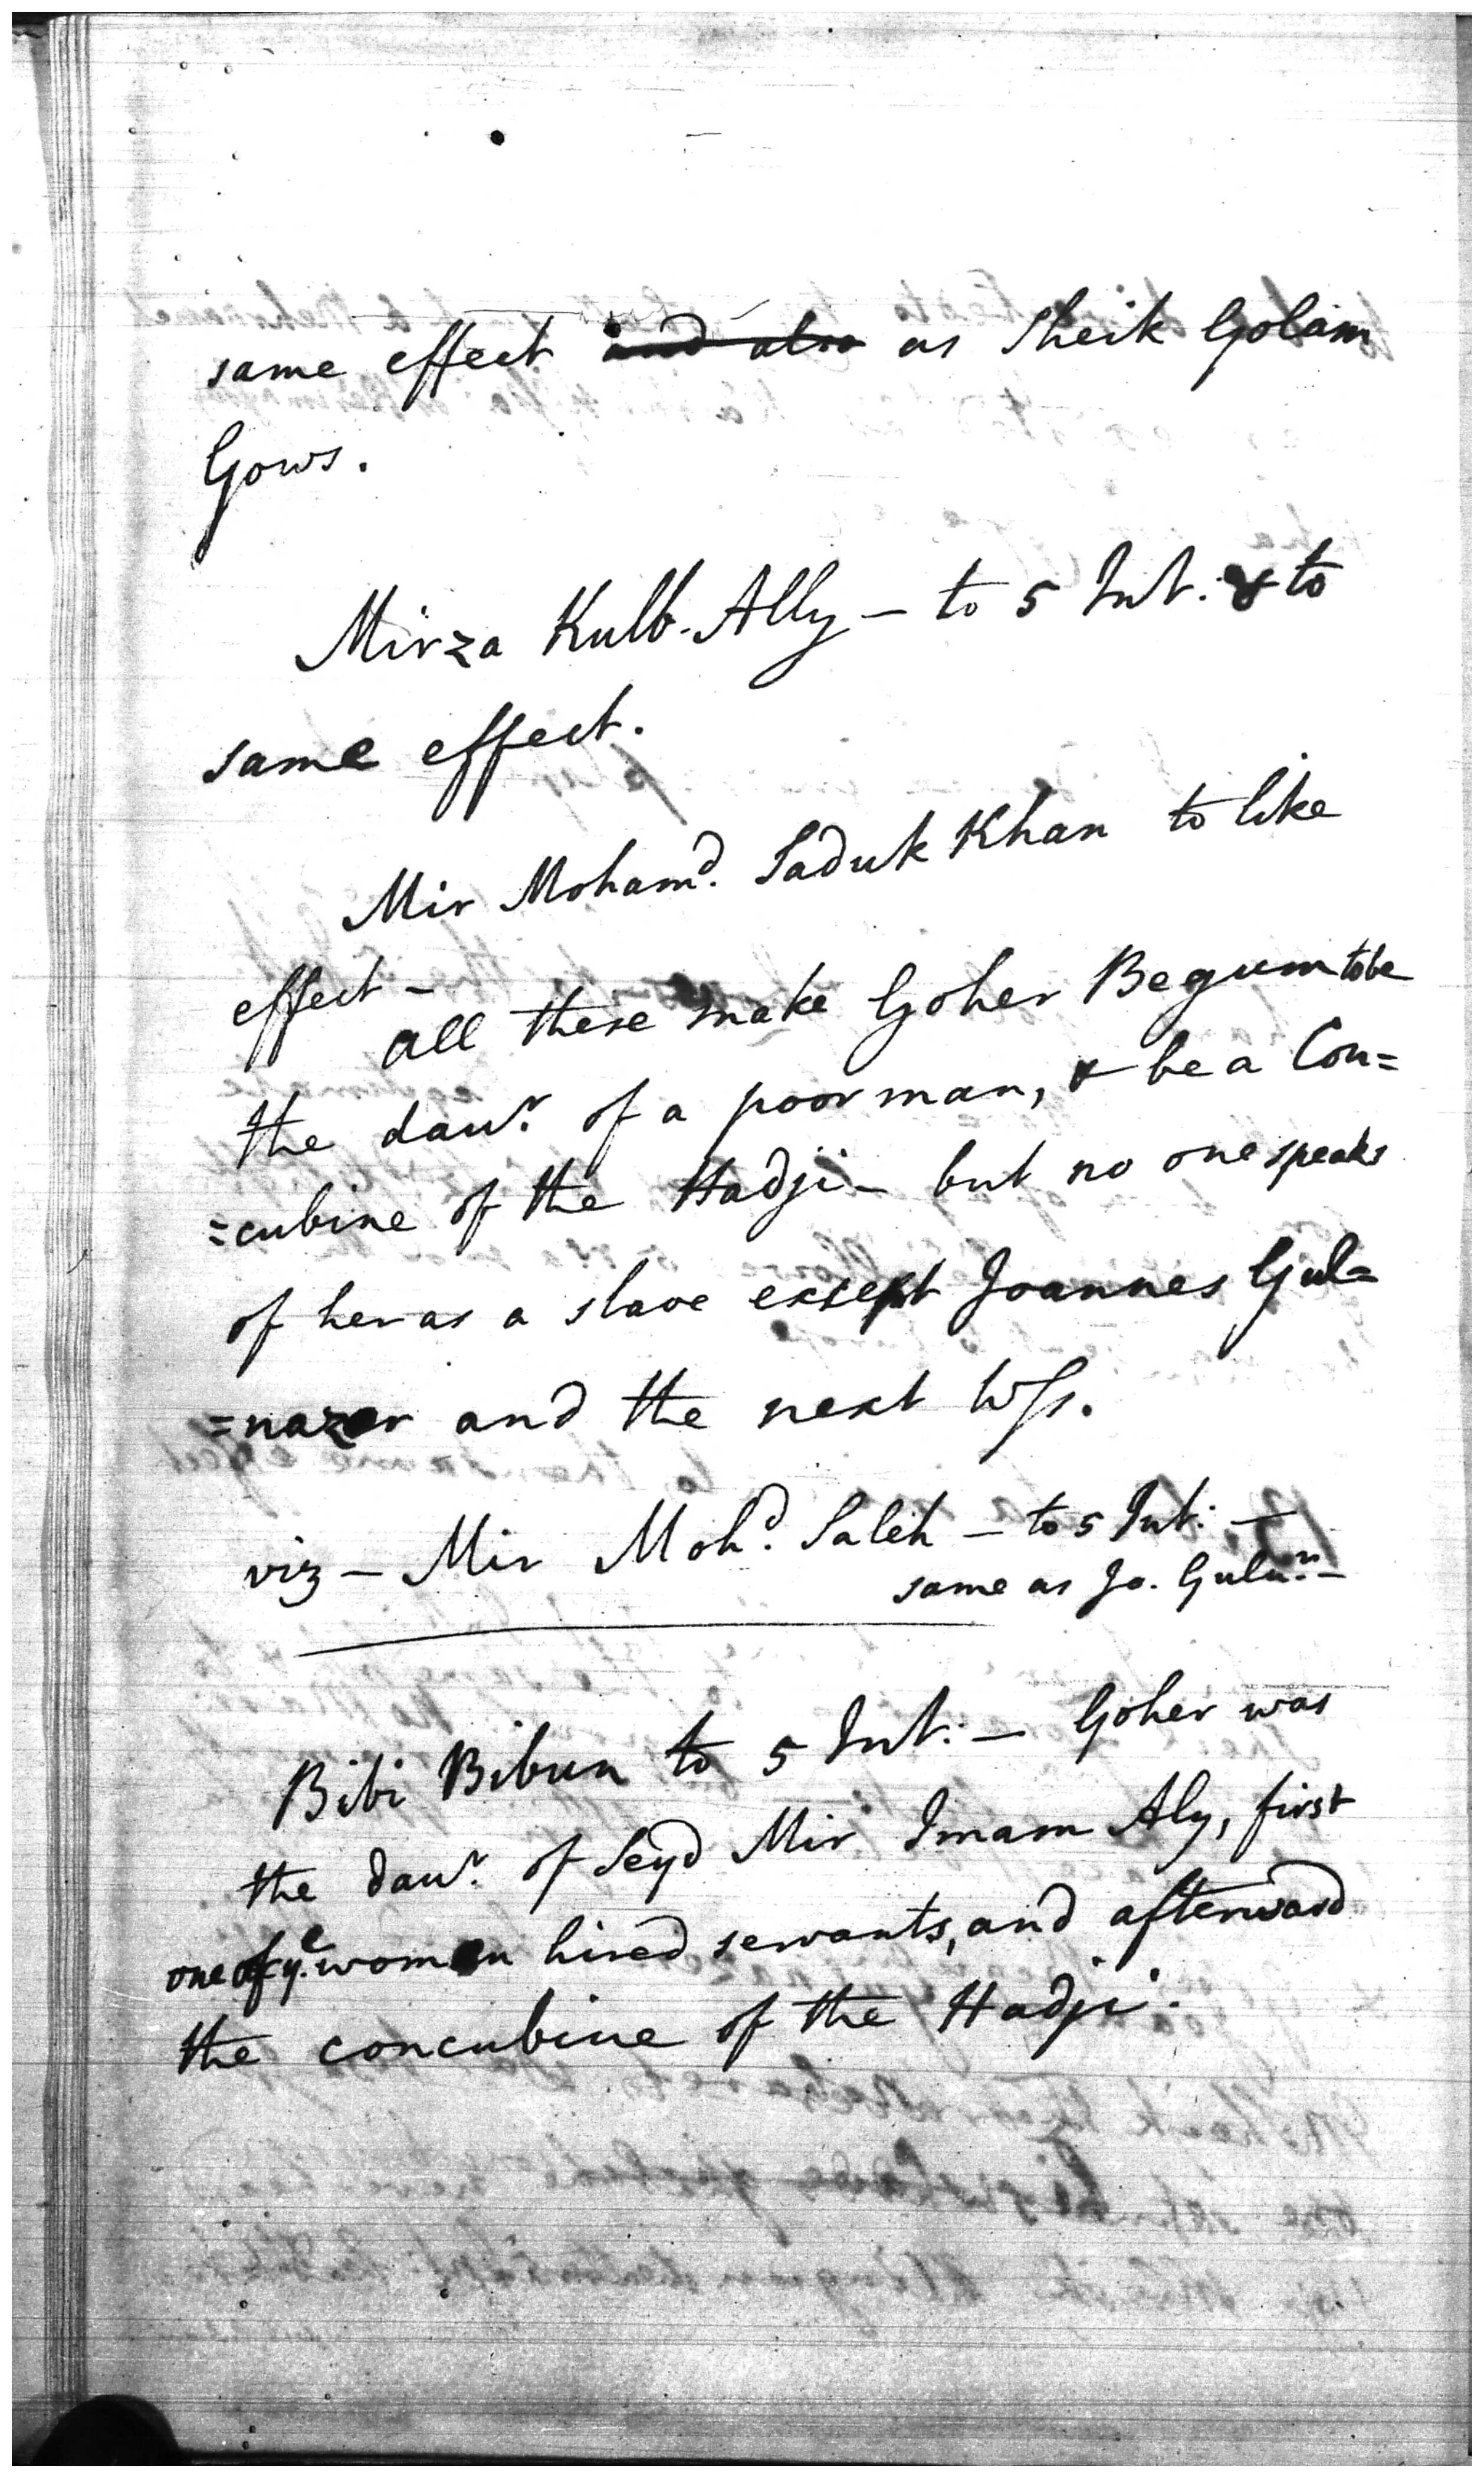 same effect and also as Sheik Golam
Gows.
Mirza Kulb-Ally - to 5 Int: & to
same effect.
Mir Mohamd. Saduk Khan to like
effect -
all these make Goher Begum to be
the daur. of a poor man, & be a Con=
=cubine of the Hadji - but no one speaks
of her as a slave except Joannes Gul=
=nazar and the next Wss.
viz - Mir Mohd. Saleh - to 5 Int: -
same as Jo. Guln. -
Bibi Bibun to 5 Int: - Goher was
the daur. of Seyd Mir Imam Aly, first
one of ye. women hired servants, and afterward
the concubine of the Hadji.